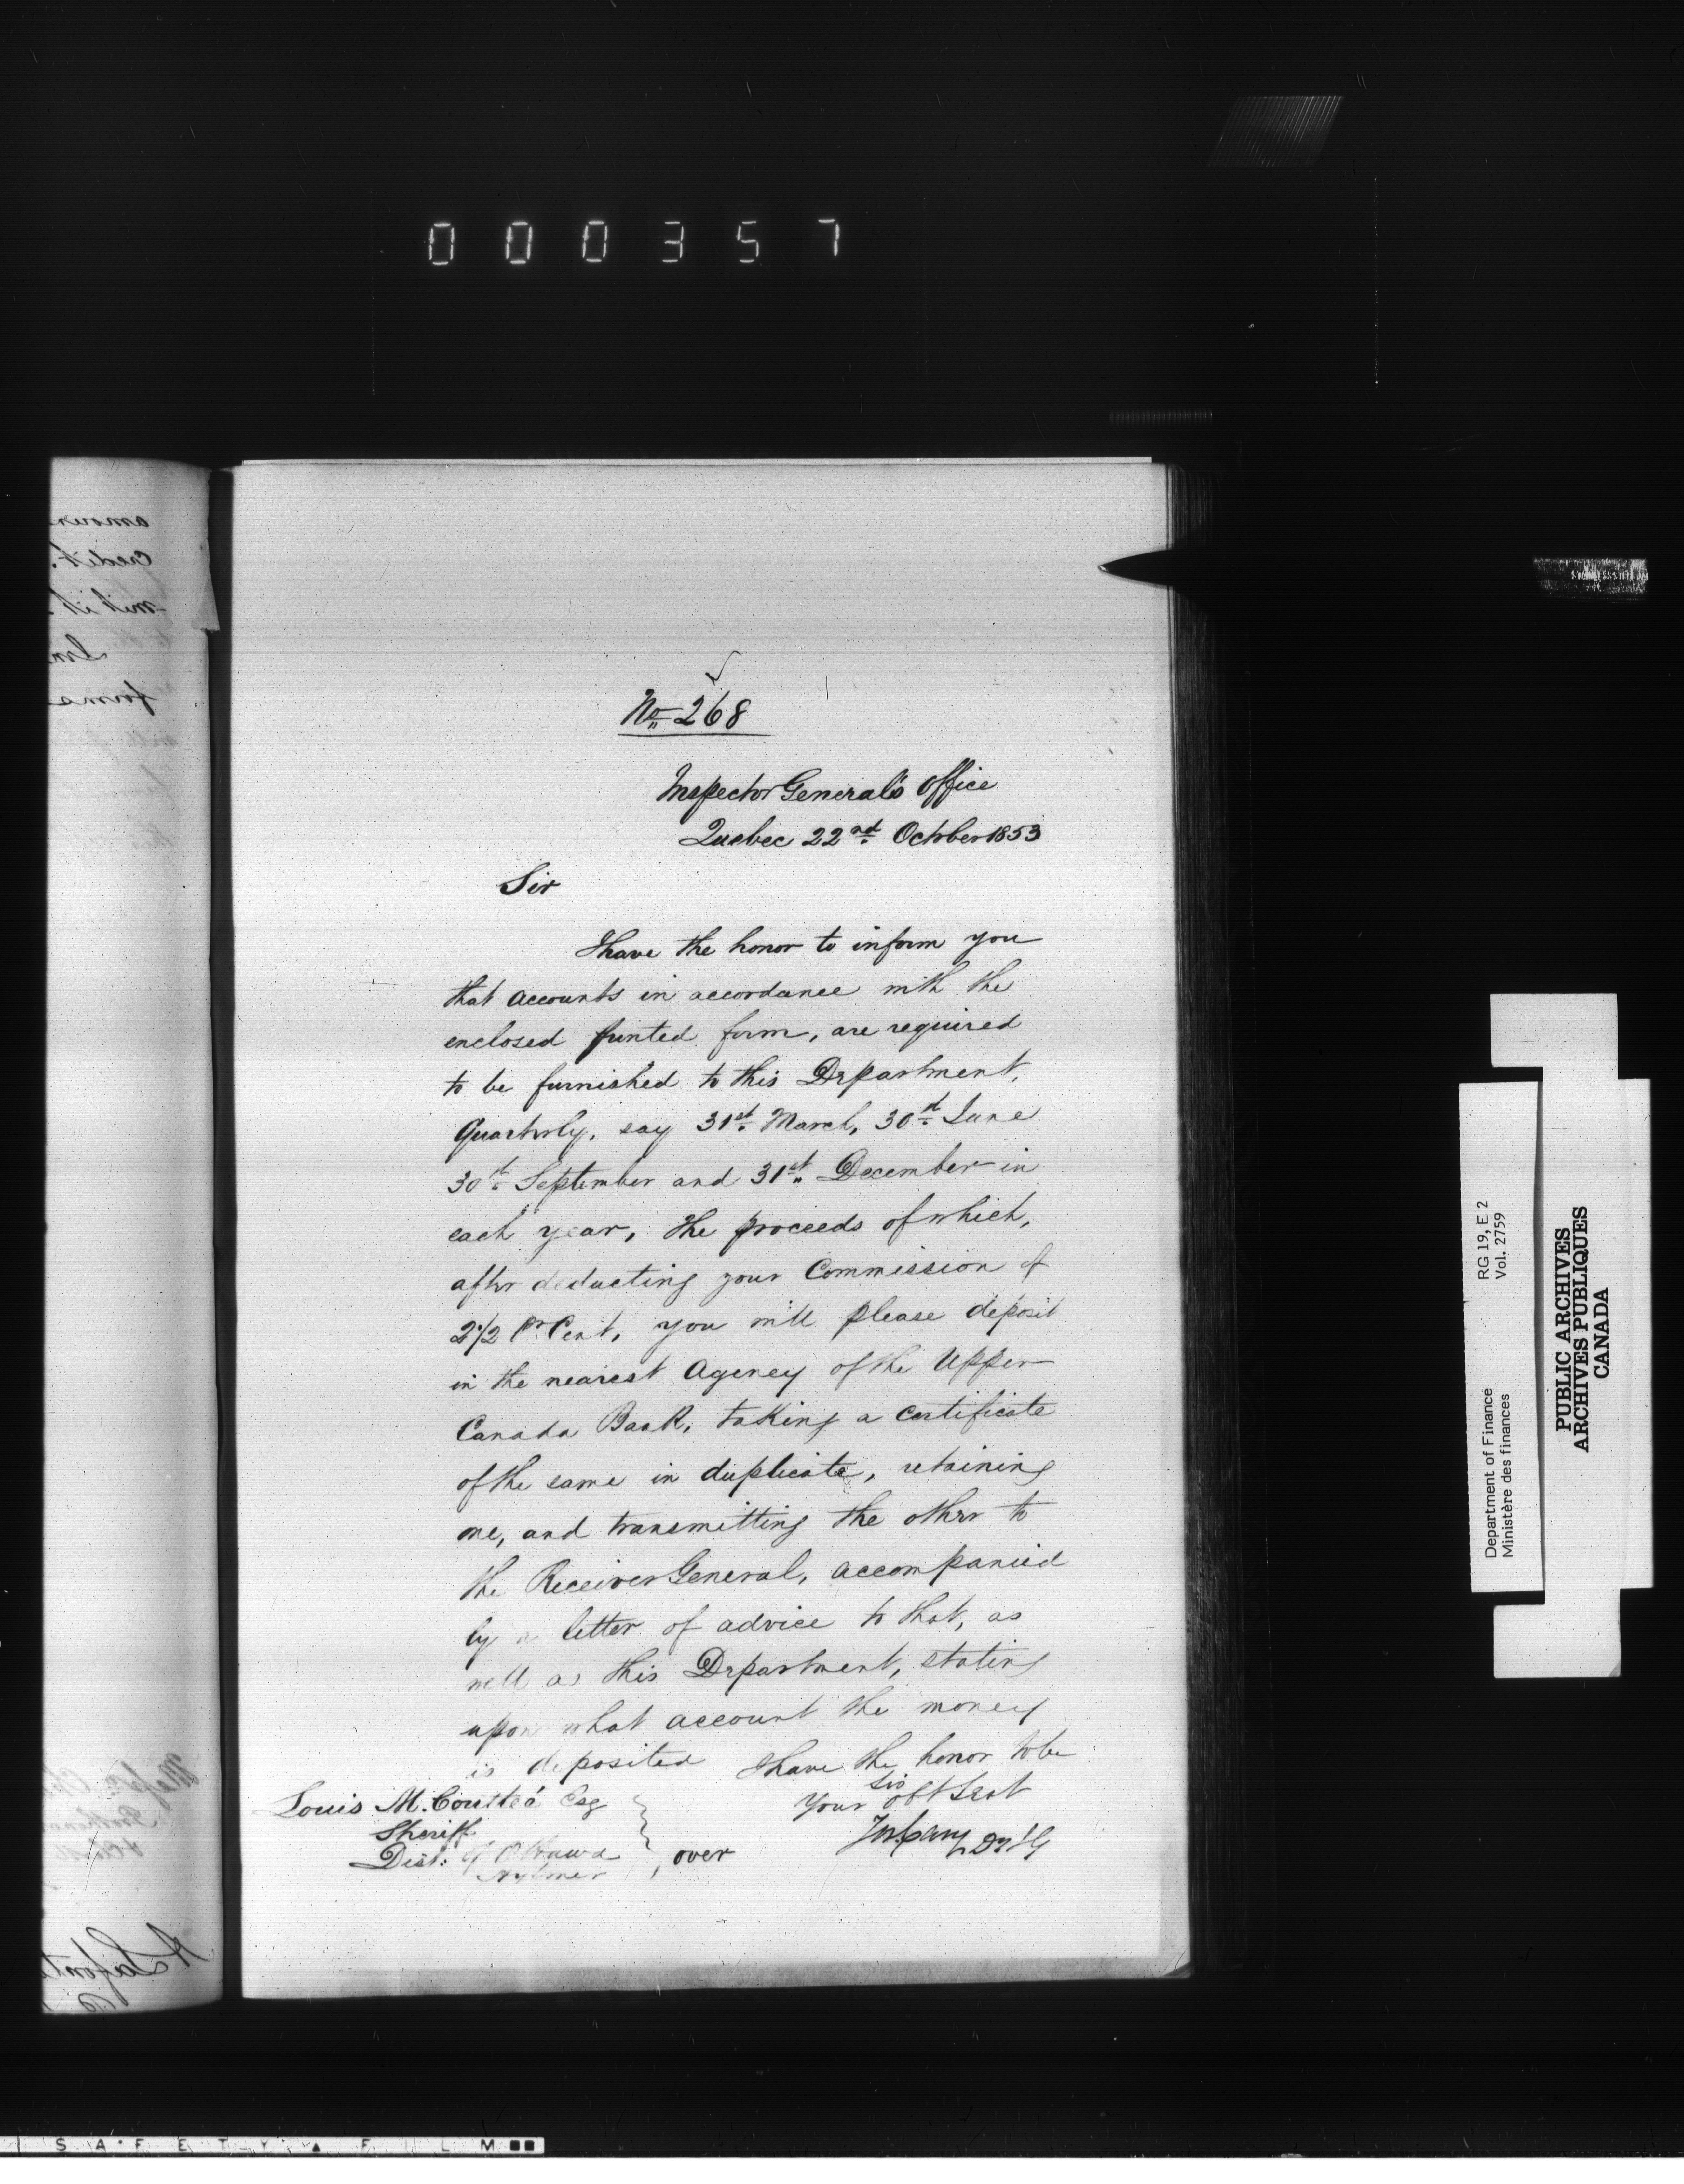 000357
No. 268
Inspector General's Office
Quebec 22nd. October 1853
Sir
I have the honor to inform you
that accounts in accordance with the
enclosed printed form, are required
to be furnished to this Department,
Quarterly, say 31st. March, 30th. June
30th. September and 31st. December in
each year, the proceeds of which,
after deducting your Commission of
2 1/2 Pr Cent, you will please deposit
in the nearest Agency of the Upper
Canada Bank, taking a certificate
of the same in duplicate, retaining
one, and transmitting the other to
the Receiver General, accompanied
by a letter of advice to that, as
well as this Department, stating
upon what account the money
is deposited I have the honor to be
Sir
Your obt Servt
Jos Cary D I G
Louis M. Couttée Esq
Sheriff
Dist: of Ottawa
Aylmer
over
RG 19, E 2
Vol. 2759
Department of Finance
Ministère des finances
PUBLIC ARCHIVES
ARCHIVES PUBLIQUES
CANADA
SAFETY FILM